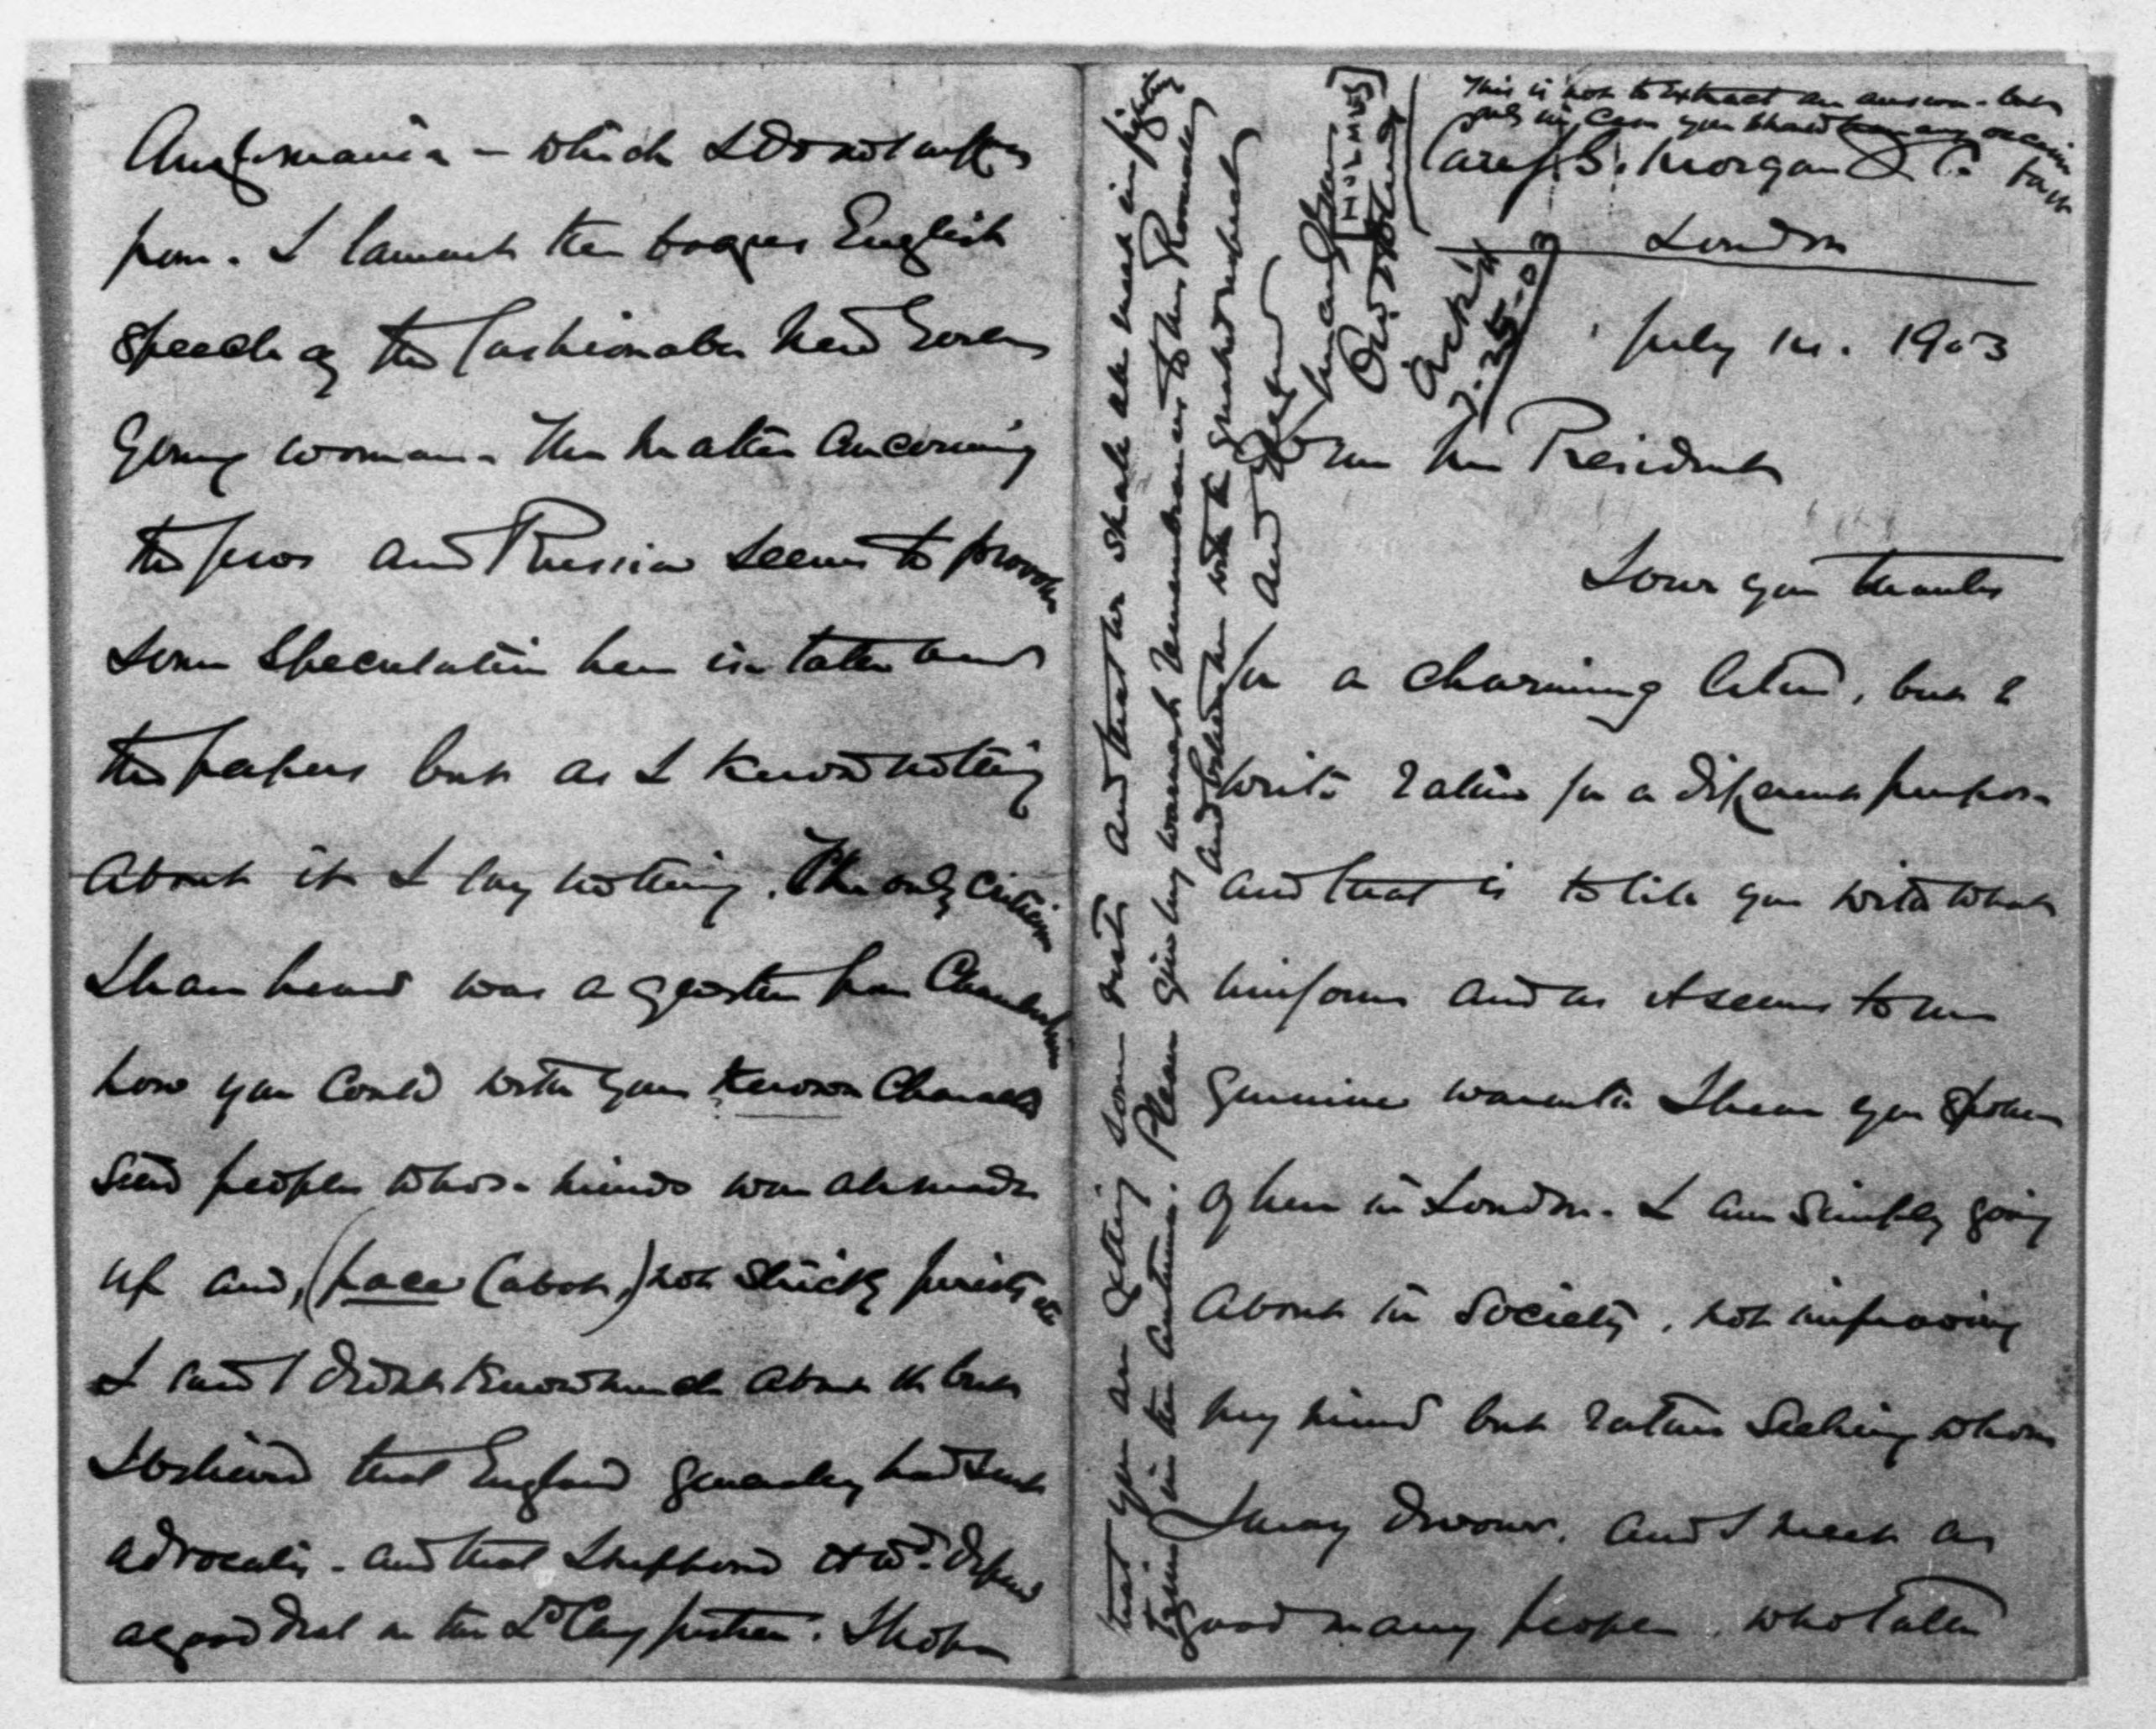 This is not to extract an answer - but
only in case you should
Care J. S. Morgan & Co
London
July 14. 1903
Ack'd
7-25-03
Dear Mr President
I owe you thanks
for a charming letter, but I
write rather for a different purpose
and that is to tell you with what
uniform and as it seems to me
genuine warmth I hear you spoken
of here in London. I am simply going
about in society, not improving
my mind but rather seeking whom
I may devour, and I meet a
good many people who talk
Anglomania - which I do not suffer
from. I lament the bogus English
speech of the fashionable New York
young woman. The matter concerning
the Jews and Russia seems to provoke
some speculation here in talk and
the papers but as I know nothing
about it I say nothing. The only criticism
I have heard was a question from Chamberlain
how you could with your known character
send people whose minds were already made
up and, (pace Cabot,) not strictly jurists etc
I said I didn't know much about it but
I believed that England generally had sent
advocates - and that I supposed it wd. depend
a good deal on the Ld Ch justice. I hope
that you are getting some rest and that we shall all meet in fighting
trim in the autumn. Please give my warmest remembrances to Mrs Roosevelt
and believe me with the greatest respect
and regard
Sincerely yours
O W Holmes
[Holmes]